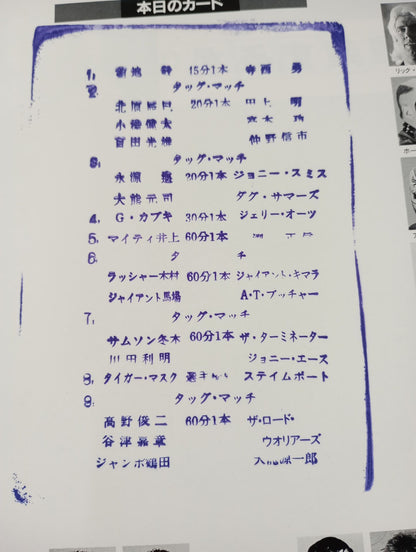 本日のカード
1. 菊地 幹 15分1本 寺西 勇
2. タッグ・マッチ
北原辰巳 20分1本 田上 明
小橋健太
百田光雄 仲野信市
3. タッグ・マッチ
永源 遙 20分1本 ジョニー・スミス
大熊元司 ダグ・サマーズ
4. G・カブキ 30分1本 ジェリー・オーツ
5. マイティ井上 60分1本
6. タ チ
ラッシャー木村 60分1本 ジャイアント・キマラ
ジャイアント馬場 A・T・ブッチャー
7. タッグ・マッチ
サムソン冬木 60分1本 ザ・ターミネーター
川田利明 ジョニー・エース
8. タイガー・マスク ステイムボート
9. タッグ・マッチ
高野俊二 60分1本 ザ・ロード・
谷津嘉章 ウオリアーズ
ジャンボ鶴田 一郎
リック・
ホー